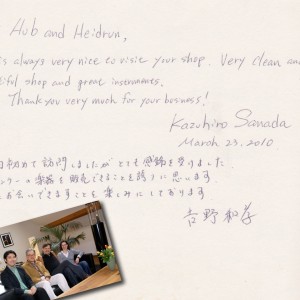 Hub and Heidrun,
is always very nice to visit your shop. Very clean and
iful shop and great instruments.
Thank you very much for your business!
Kazuhiro Sanada
March 23, 2010
日初めて訪問しましたが とても感銘を受けました
楽器を販売できることを誇りに思います
お会いできますことを楽しみにしております